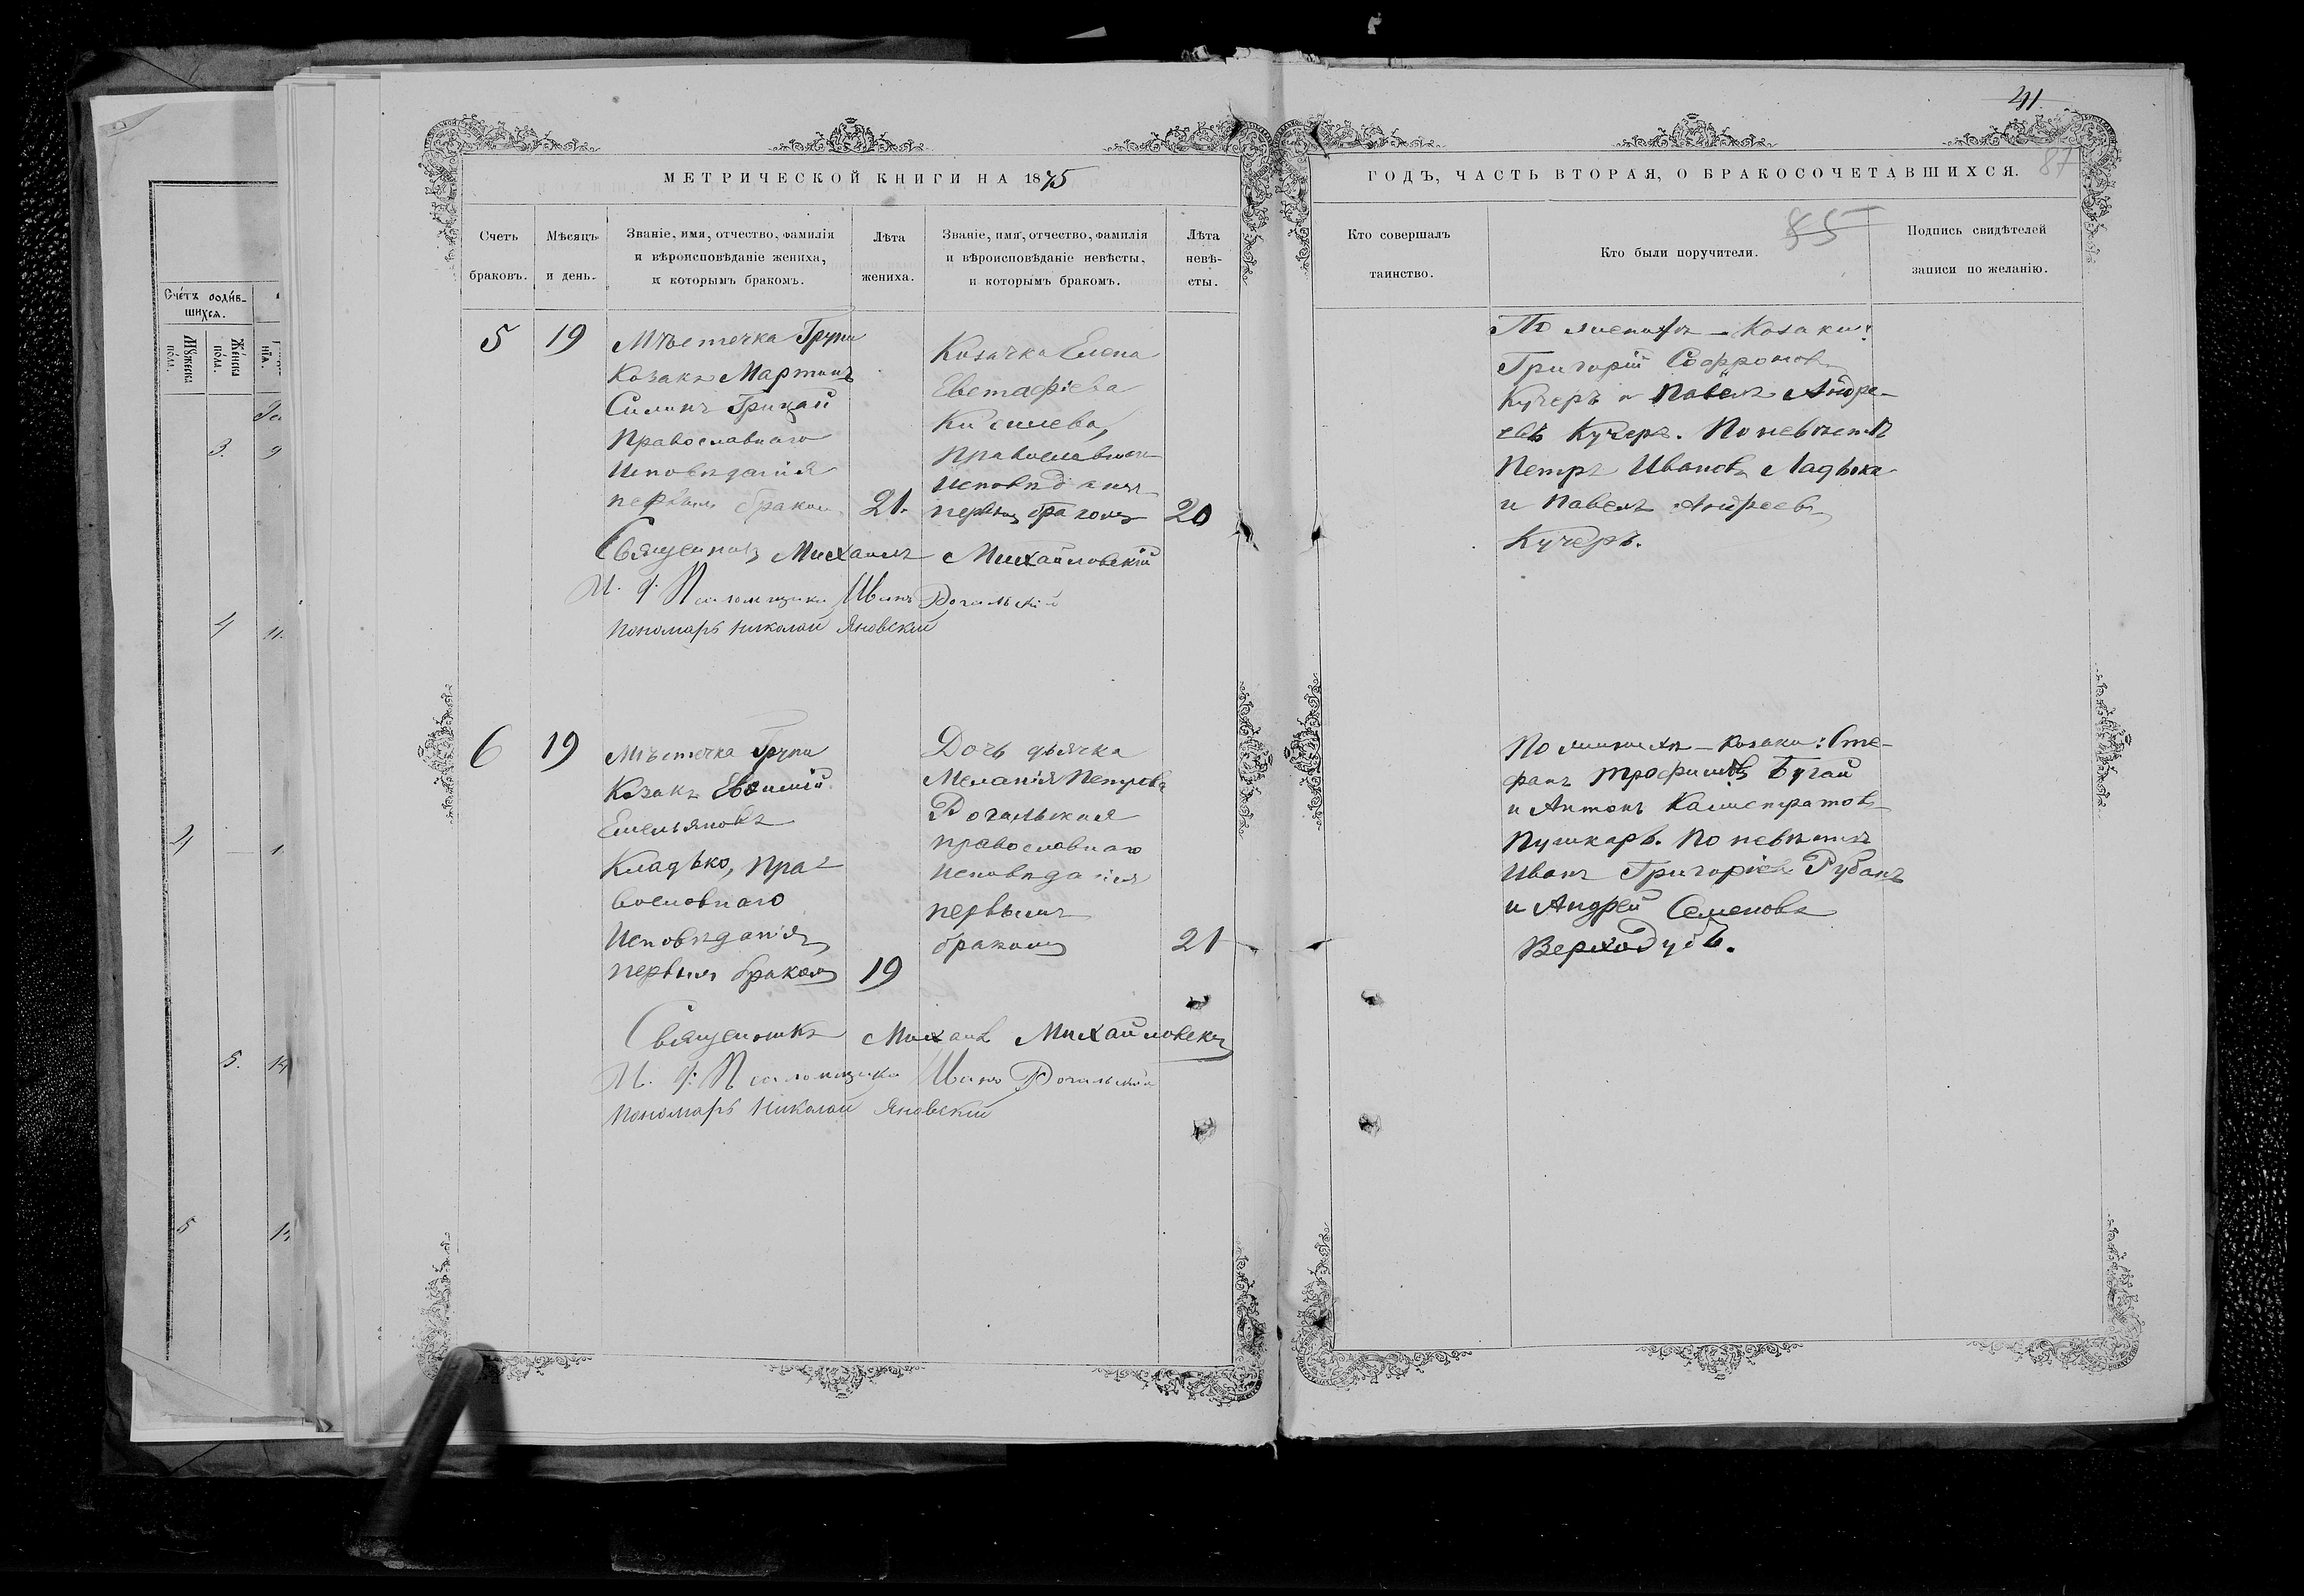 41.
87
МЕТРИЧЕСКОЙ КНИГИ НА 1875
Счетъ браковъ.
Мѣсяцъ и день.
Званіе, имя, отчество, фамилія
и вѣроисповѣданіе жениха,
и которымъ бракомъ.
Лѣта жениха.
Званіе, имя, отчество, фамилія
и вѣроисповѣданіе невѣсты,
и которымъ бракомъ.
Лѣта невѣ-
сты.
5
19
Мѣстечка Груни
Козакъ Мартинъ
Силинъ Грицай
Православнаго
Исповѣданія
первымъ бракомъ
21.
Козачка Елена
Евстафіева
Православнаго
Исповѣданія
первымъ бракомъ
20
Священникъ Михаилъ Михайловскій
И. д. Псаломщика Иванъ Рогальскій
Пономарь Николай Яновскій
6
19
Мѣстечка Груни
Козакъ Евфимій
Емельяновъ
Кладько, пра-
вославнаго
Исповѣданія,
первымъ бракомъ
19
Дочь дьячка
Меланія Петрова
Рогальская
православнаго
исповѣданія
первымъ
бракомъ
21
Священникъ Михаилъ Михайловскій
И. д. Псаломщика Иванъ Рогальскій
Пономарь Николай Яновскій
ГОДЪ, ЧАСТЬ ВТОРАЯ, О БРАКОСОЧЕТАВШИХСЯ.
Кто совершалъ
таинство.
Кто были поручители.
85
Подпись свидѣтелей
записи по желанію.
По женихѣ — Козаки:
Григорій Софроновъ
Кучеръ и Павелъ Андре-
евъ Кучеръ. По невѣстѣ
Петръ Ивановъ Ладыка
и Павелъ Андреевъ
Кучеръ.
По женихѣ — козаки: Сте-
фанъ Трофимовъ Бугай
и Антонъ Калистратовъ
Пушкарь. По невѣстѣ
Иванъ Григоріевъ Рубанъ
и Андрей Семеновъ
Верходубъ.
Счётъ родив-
шихся.
Мужеска
пола.
Женска
пола.
3.
9
4
11.
4
1
5.
14
5